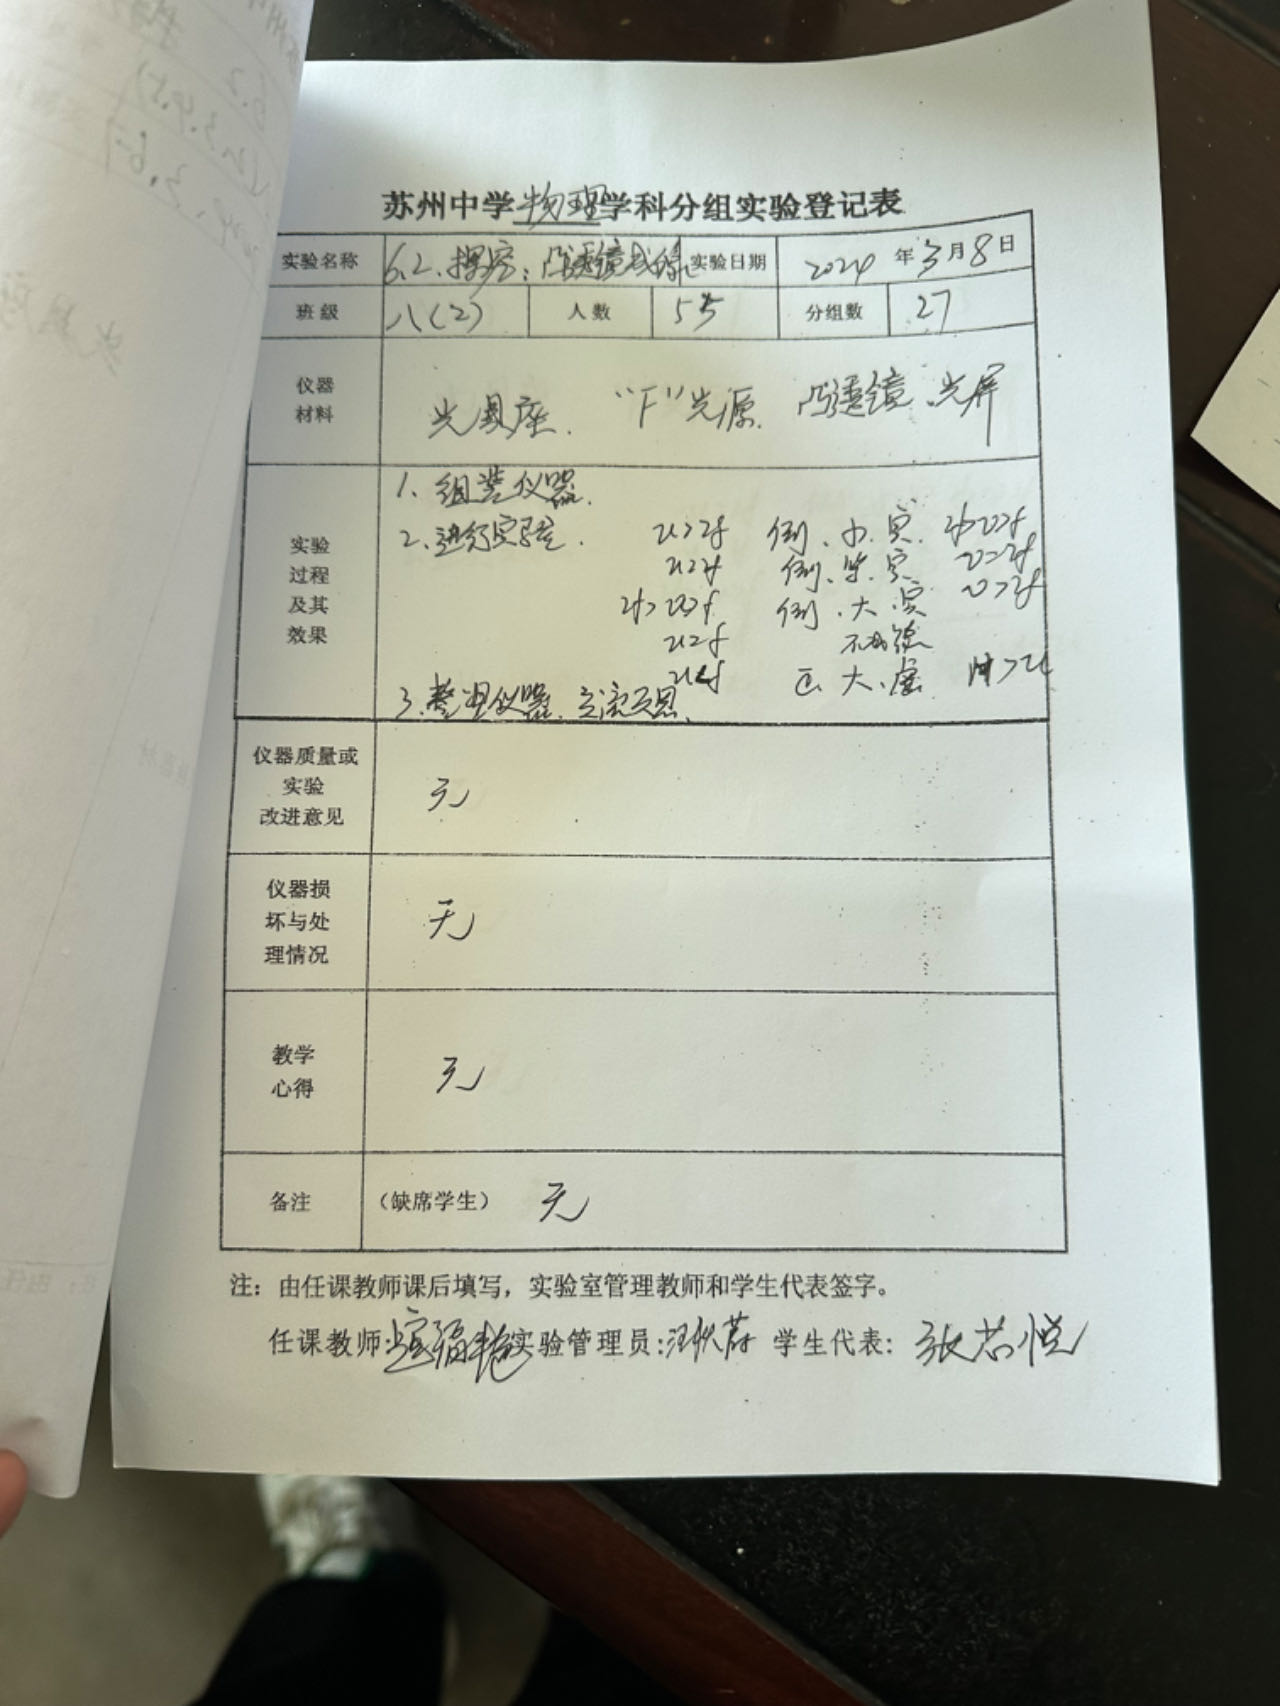 苏州中学物理学科分组实验登记表
实验名称 6.2.探究:凸透镜成像 实验日期 2024年3月8日
班级 八(2) 人数 55 分组数 27
仪器材料 光具座. “F”光源. 凸透镜.光屏
实验过程及其效果
1、组装仪器.
2、进行实验. u>2f 倒、小、实. 2f>v>f
u=2f 倒、等、实 v=2f
2f>u>f 倒、大、实 v>2f
u=f 不成像
u<f 正、大、虚
3、整理仪器、交流
仪器质量或实验改进意见 无
仪器损坏与处理情况 无
教学心得 无
备注 (缺席学生) 无
注:由任课教师课后填写,实验室管理教师和学生代表签字。
任课教师: 实验管理员: 学生代表: 张芯悦